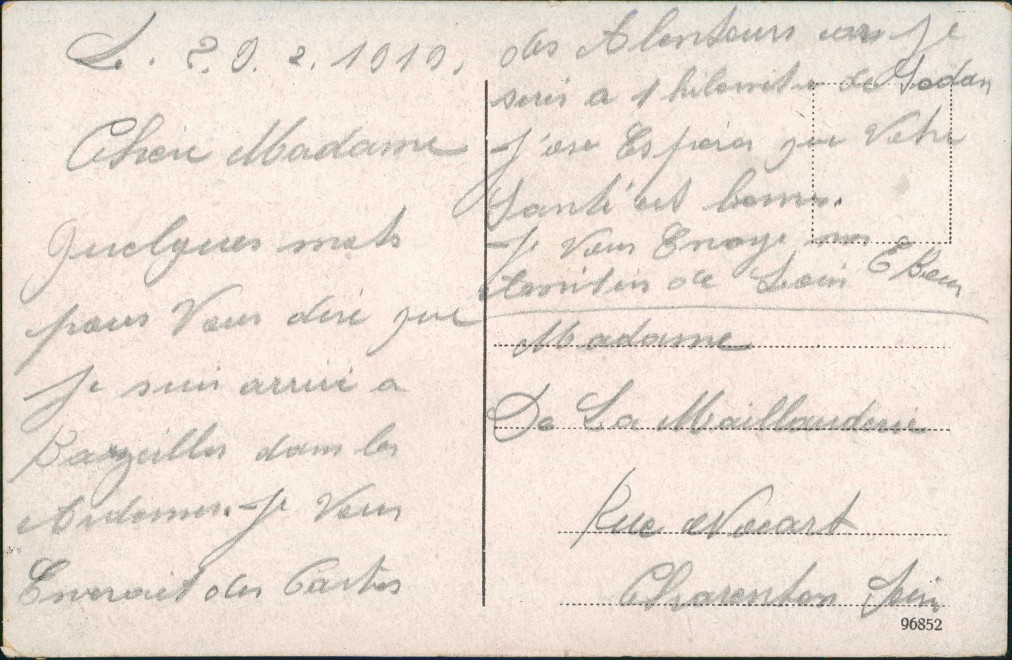 Le. 2.9.2.1919.
Chere Madame
Quelques mots
pour Vous dire que
Je suis arrivé a
Bazeilles dans les
Ardennes. Je Vous
Enverait des Cartes
des Alentours car Je
seris a 1 kilomitre de Sedan
J'ose Esperer que Votre
Santé est bonne.
Je Vous Envoye mes
de Loin
Madame
De La Maillauderie
Rue
Charenton Seine
96852